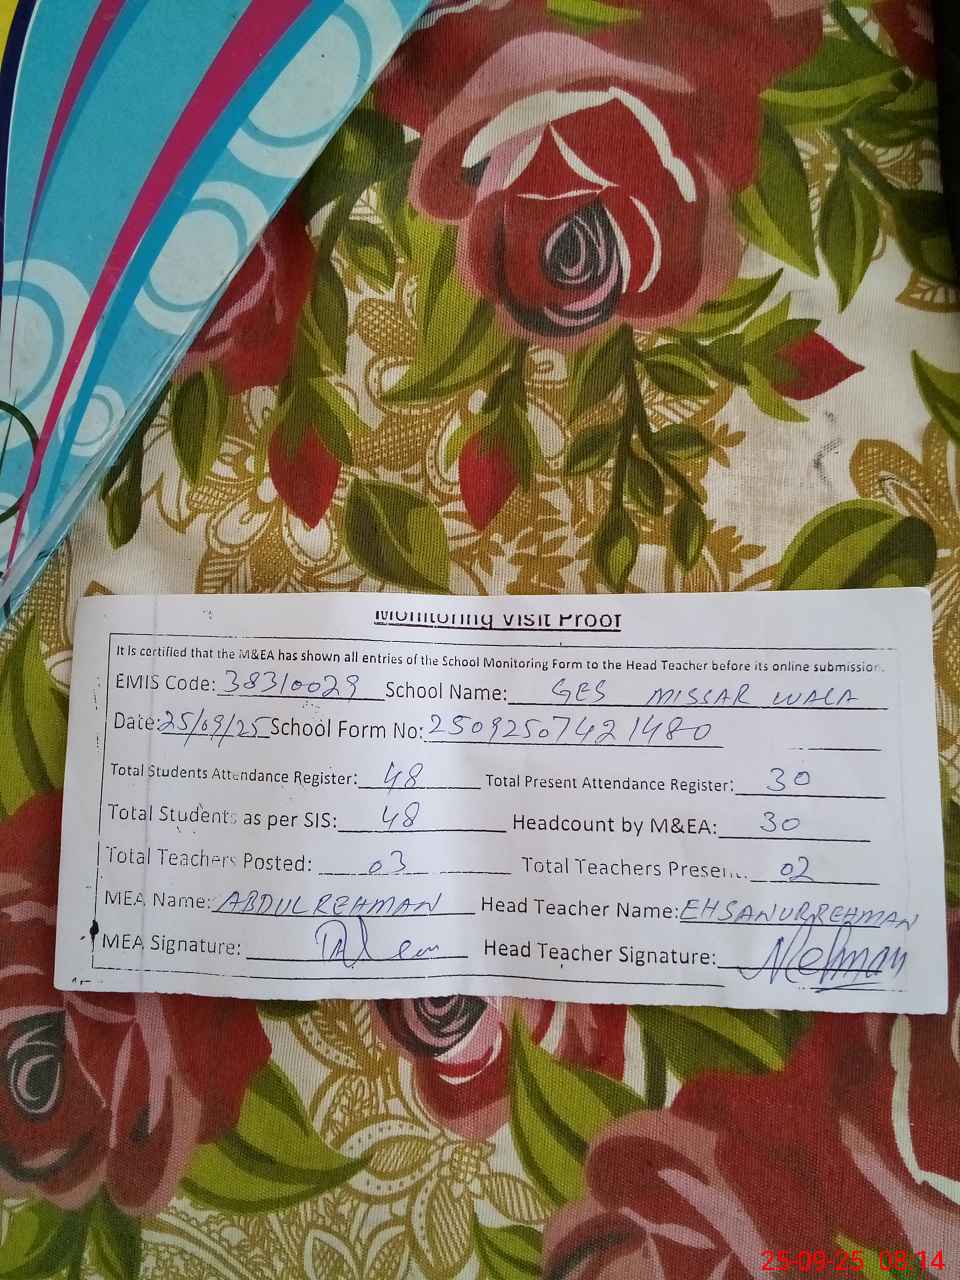 Monitoring Visit Proof
It is certified that the M&EA has shown all entries of the School Monitoring Form to the Head Teacher before its online submission.
EMIS Code: 38310029 School Name: GES MISSAR WALA
Date: 25/09/25 School Form No: 25092507421480
Total Students Attendance Register: 48 Total Present Attendance Register: 30
Total Students as per SIS: 48 Headcount by M&EA: 30
Total Teachers Posted: 03 Total Teachers Present: 02
MEA Name: ABDUL REHMAN Head Teacher Name: EHSANURREHMAN
MEA Signature: Head Teacher Signature: Rehman
25-09-25 08:14